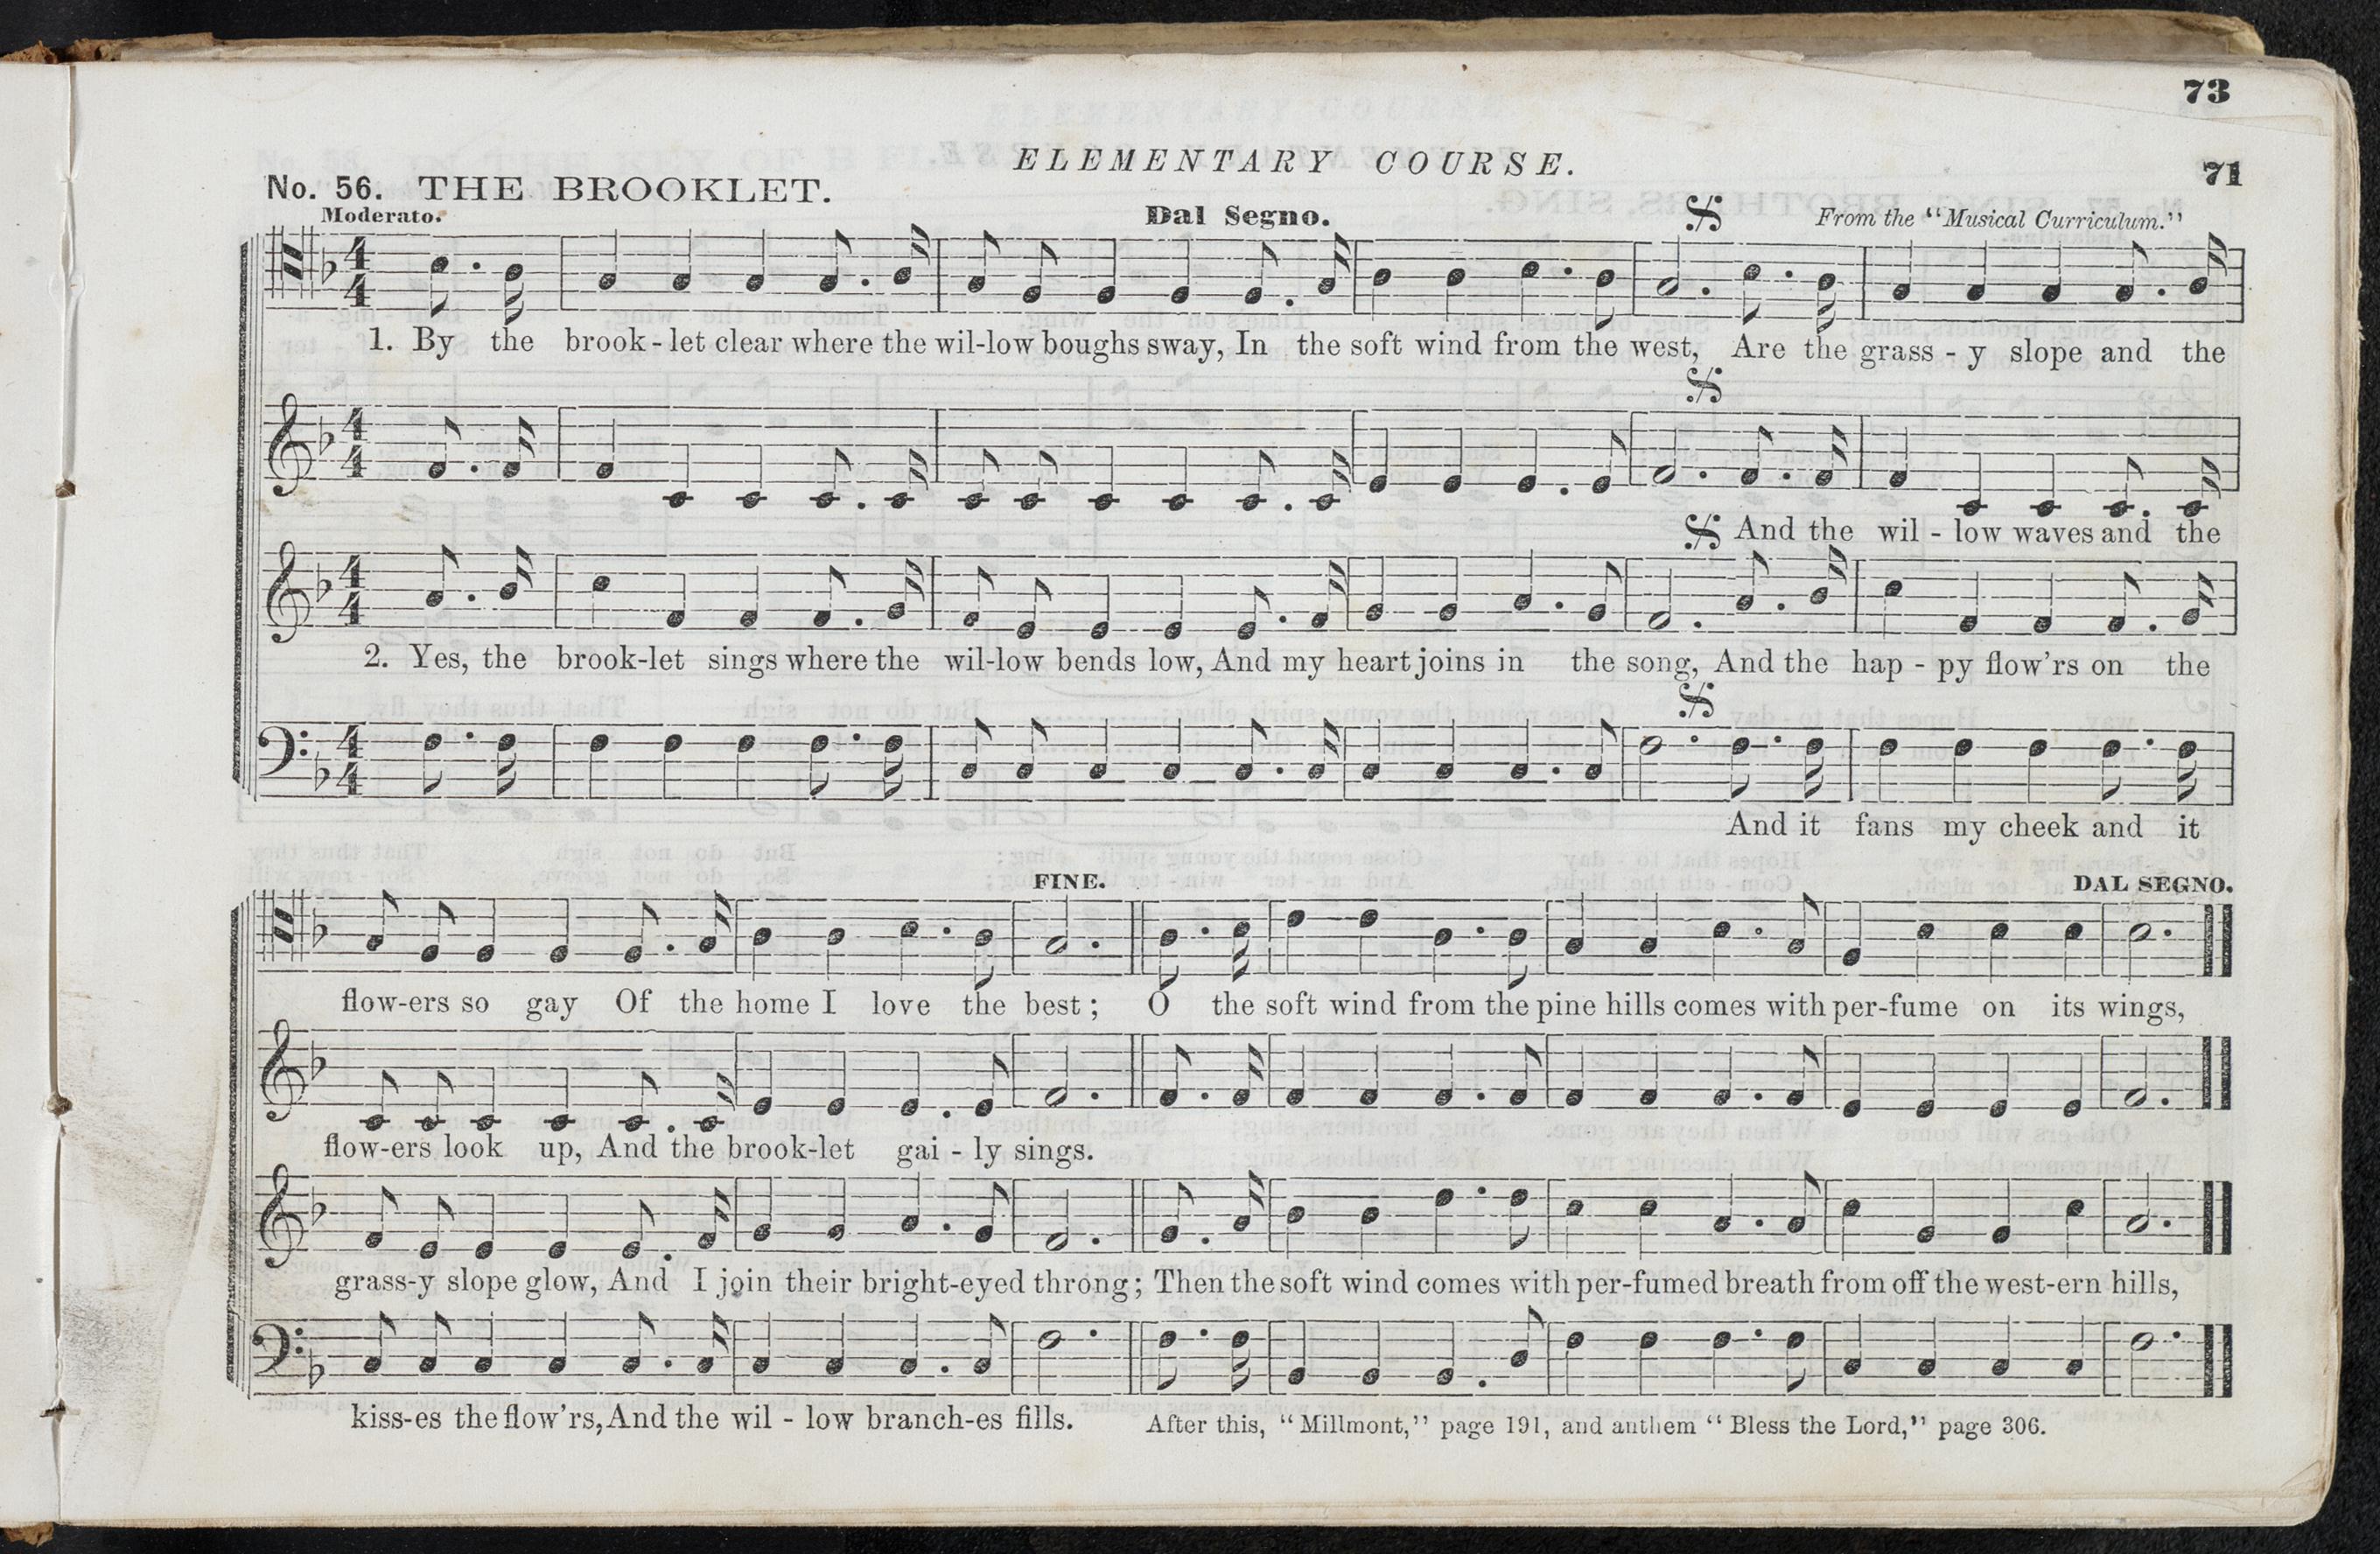 73
ELEMENTARY COURSE.
71
No. 56. THE BROOKLET.
Moderato.
Dal Segno.
From the "Musical Curriculum."
4 4
1. By the brook - let clear where the wil-low boughs sway, In the soft wind from the west, Are the grass - y slope and the
4 4
And the wil - low waves and the
4 4
2. Yes, the brook-let sings where the wil-low bends low, And my heart joins in the song, And the hap - py flow'rs on the
4 4
And it fans my cheek and it
FINE.
DAL SEGNO.
flow-ers so gay Of the home I love the best; O the soft wind from the pine hills comes with per-fume on its wings,
flow-ers look up, And the brook-let gai - ly sings.
grass-y slope glow, And I join their bright-eyed throng; Then the soft wind comes with per-fumed breath from off the west-ern hills,
kiss-es the flow'rs, And the wil - low branch-es fills.
After this, "Millmont," page 191, and anthem "Bless the Lord," page 306.